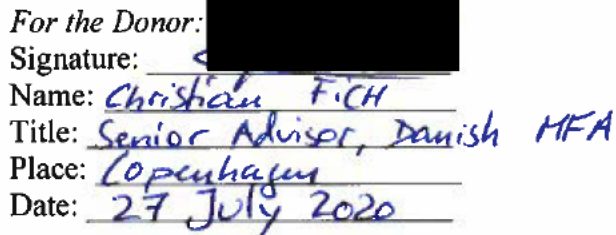 For the Donor:
Signature:
Name: Christian FiCH
Title: Senior Advisor, Danish MFA
Place: Copenhagen
Date: 27 July 2020